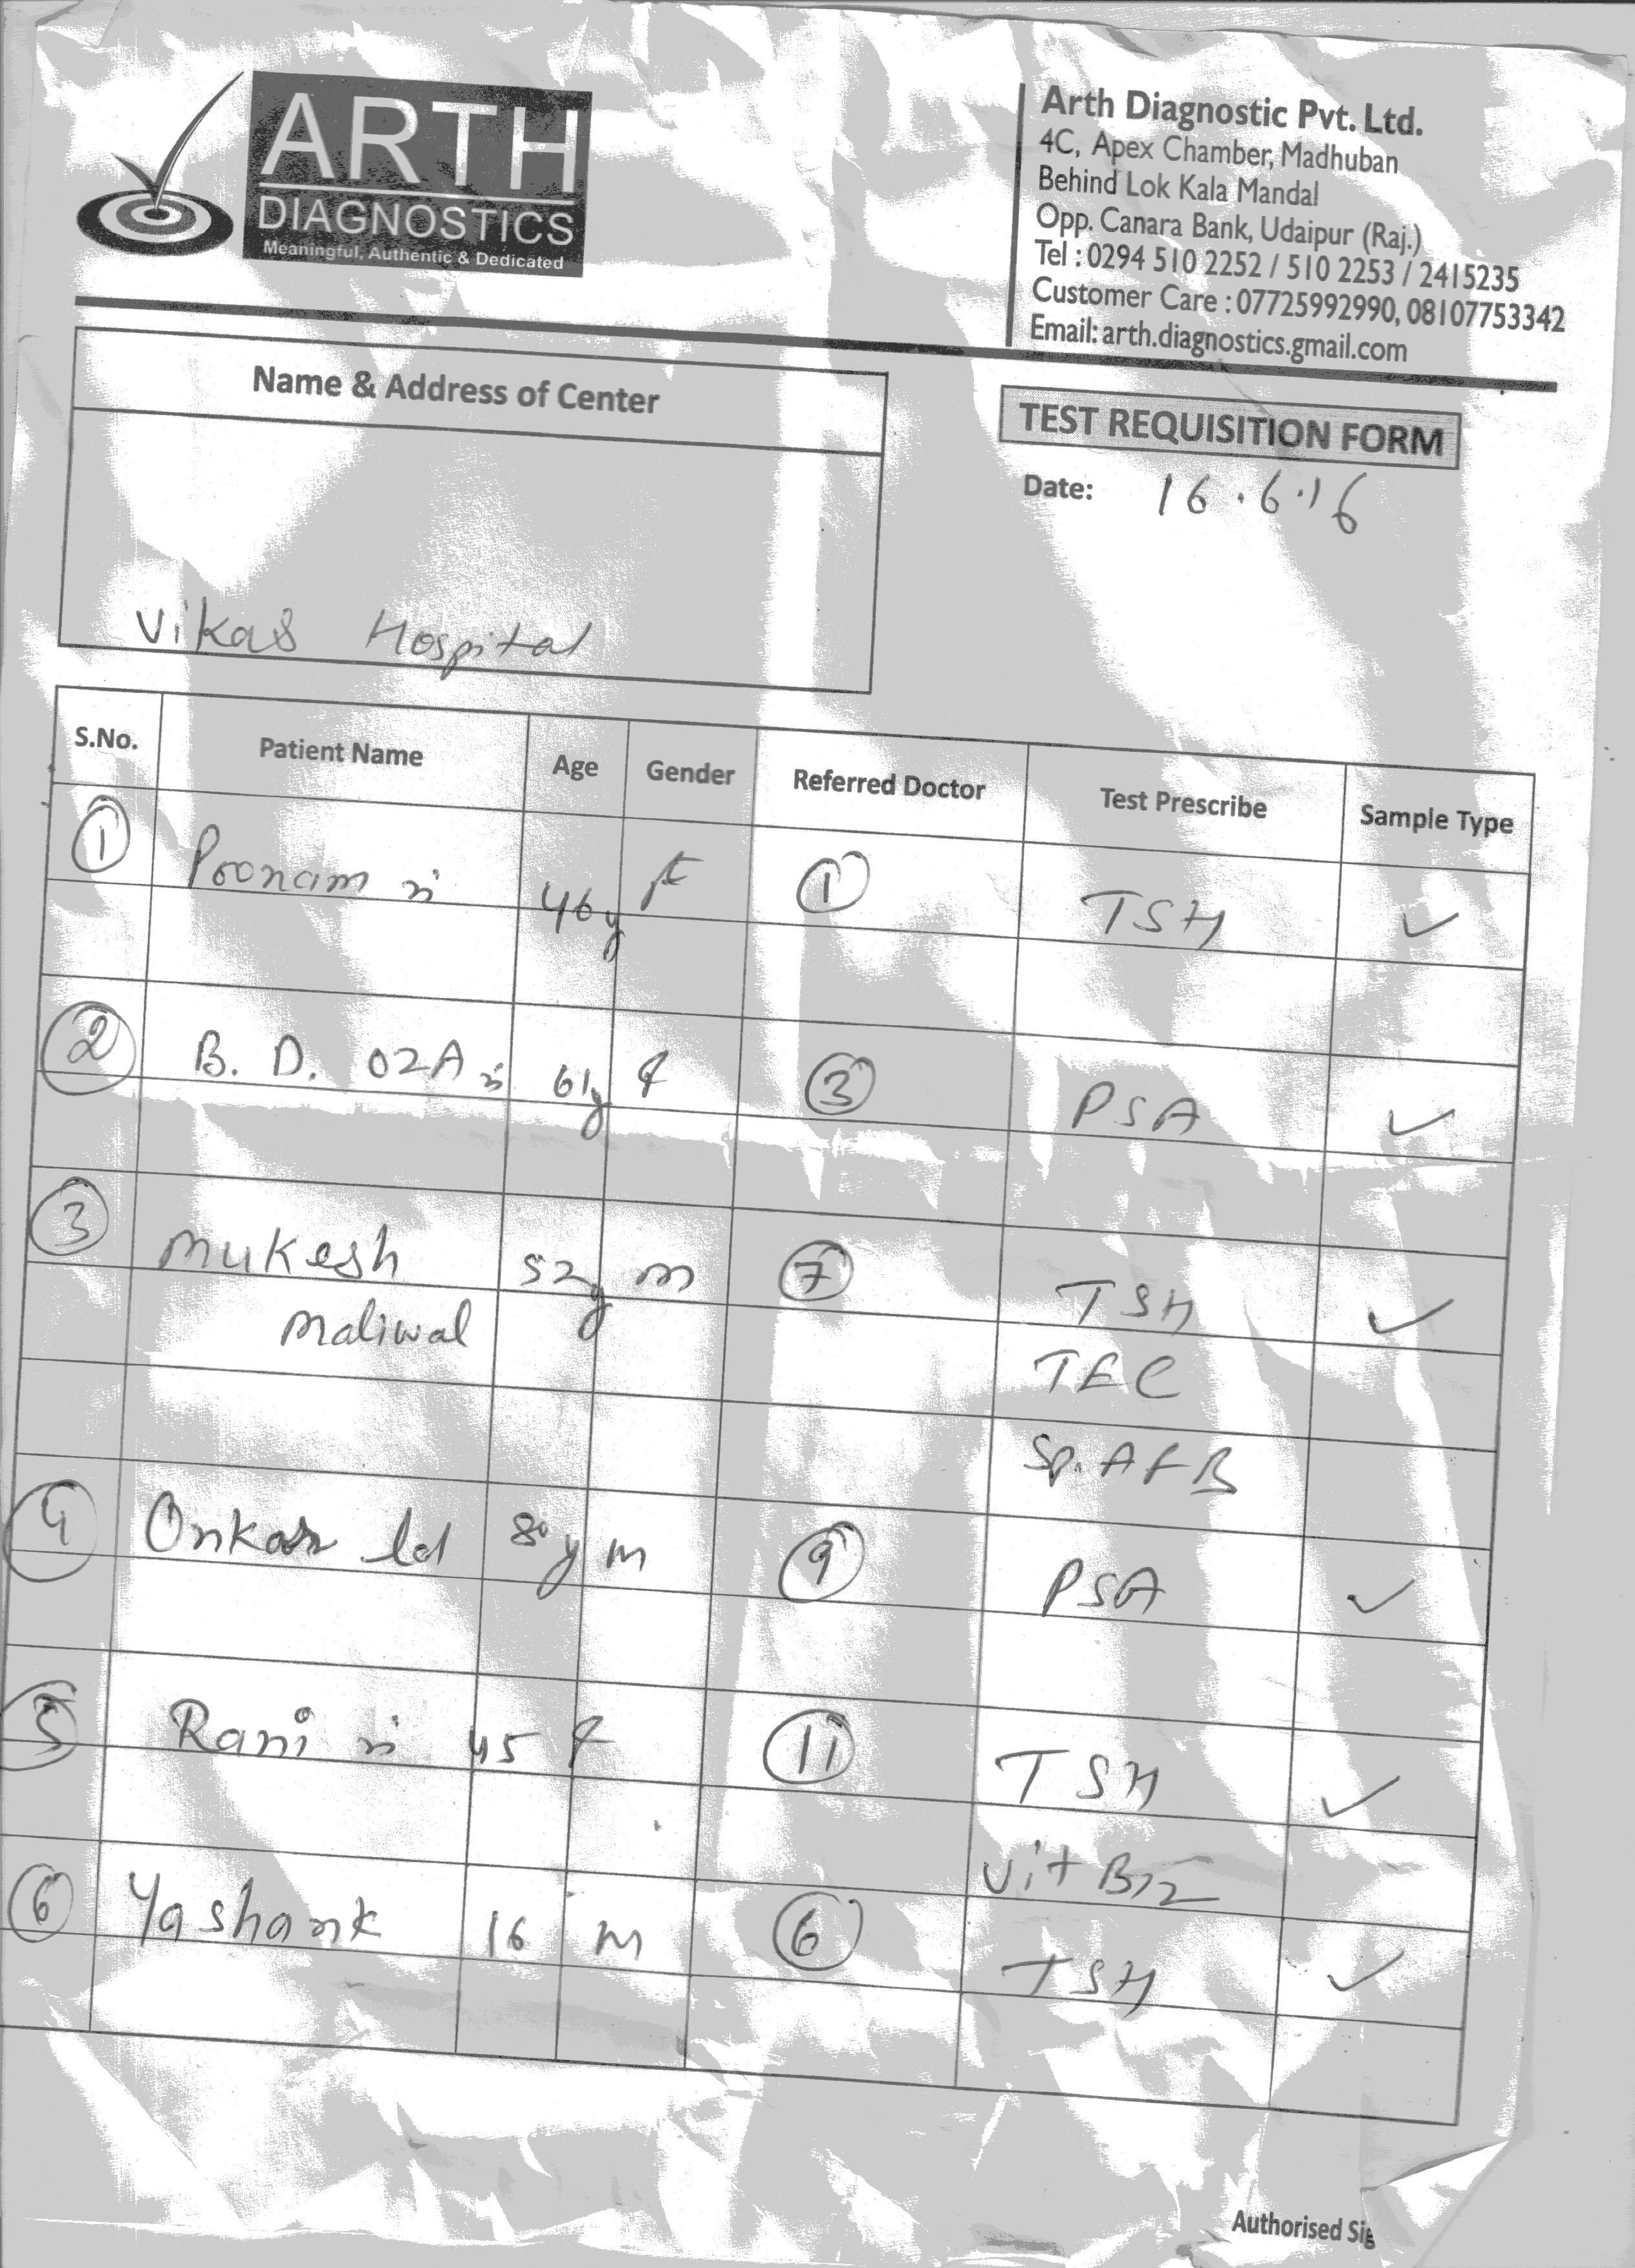 ARTH
DIAGNOSTICS
Meaningful, Authentic & Dedicated
Arth Diagnostic Pvt. Ltd.
4C, Apex Chamber, Madhuban
Behind Lok Kala Mandal
Opp. Canara Bank, Udaipur (Raj.)
Tel : 0294 510 2252 / 510 2253 / 2415235
Customer Care : 07725992990, 08107753342
Email: arth.diagnostics.gmail.com
Name & Address of Center
Vikas Hospital
TEST REQUISITION FORM
Date: 16.6.16
S.No. Patient Name Age Gender Referred Doctor Test Prescribe Sample Type
1 Poonam 46y F 1 TSH ✓
2 B. D. 61y F 3 PSA ✓
3 Mukesh 52y m 7 TSH ✓
Maliwal TEC
Sp. AFB
4 Onkar 80y m 9 PSA ✓
5 Rani 45 F 11 TSH ✓
Vit B12
6 Yashank 16 M 6 TSH ✓
Authorised Sig